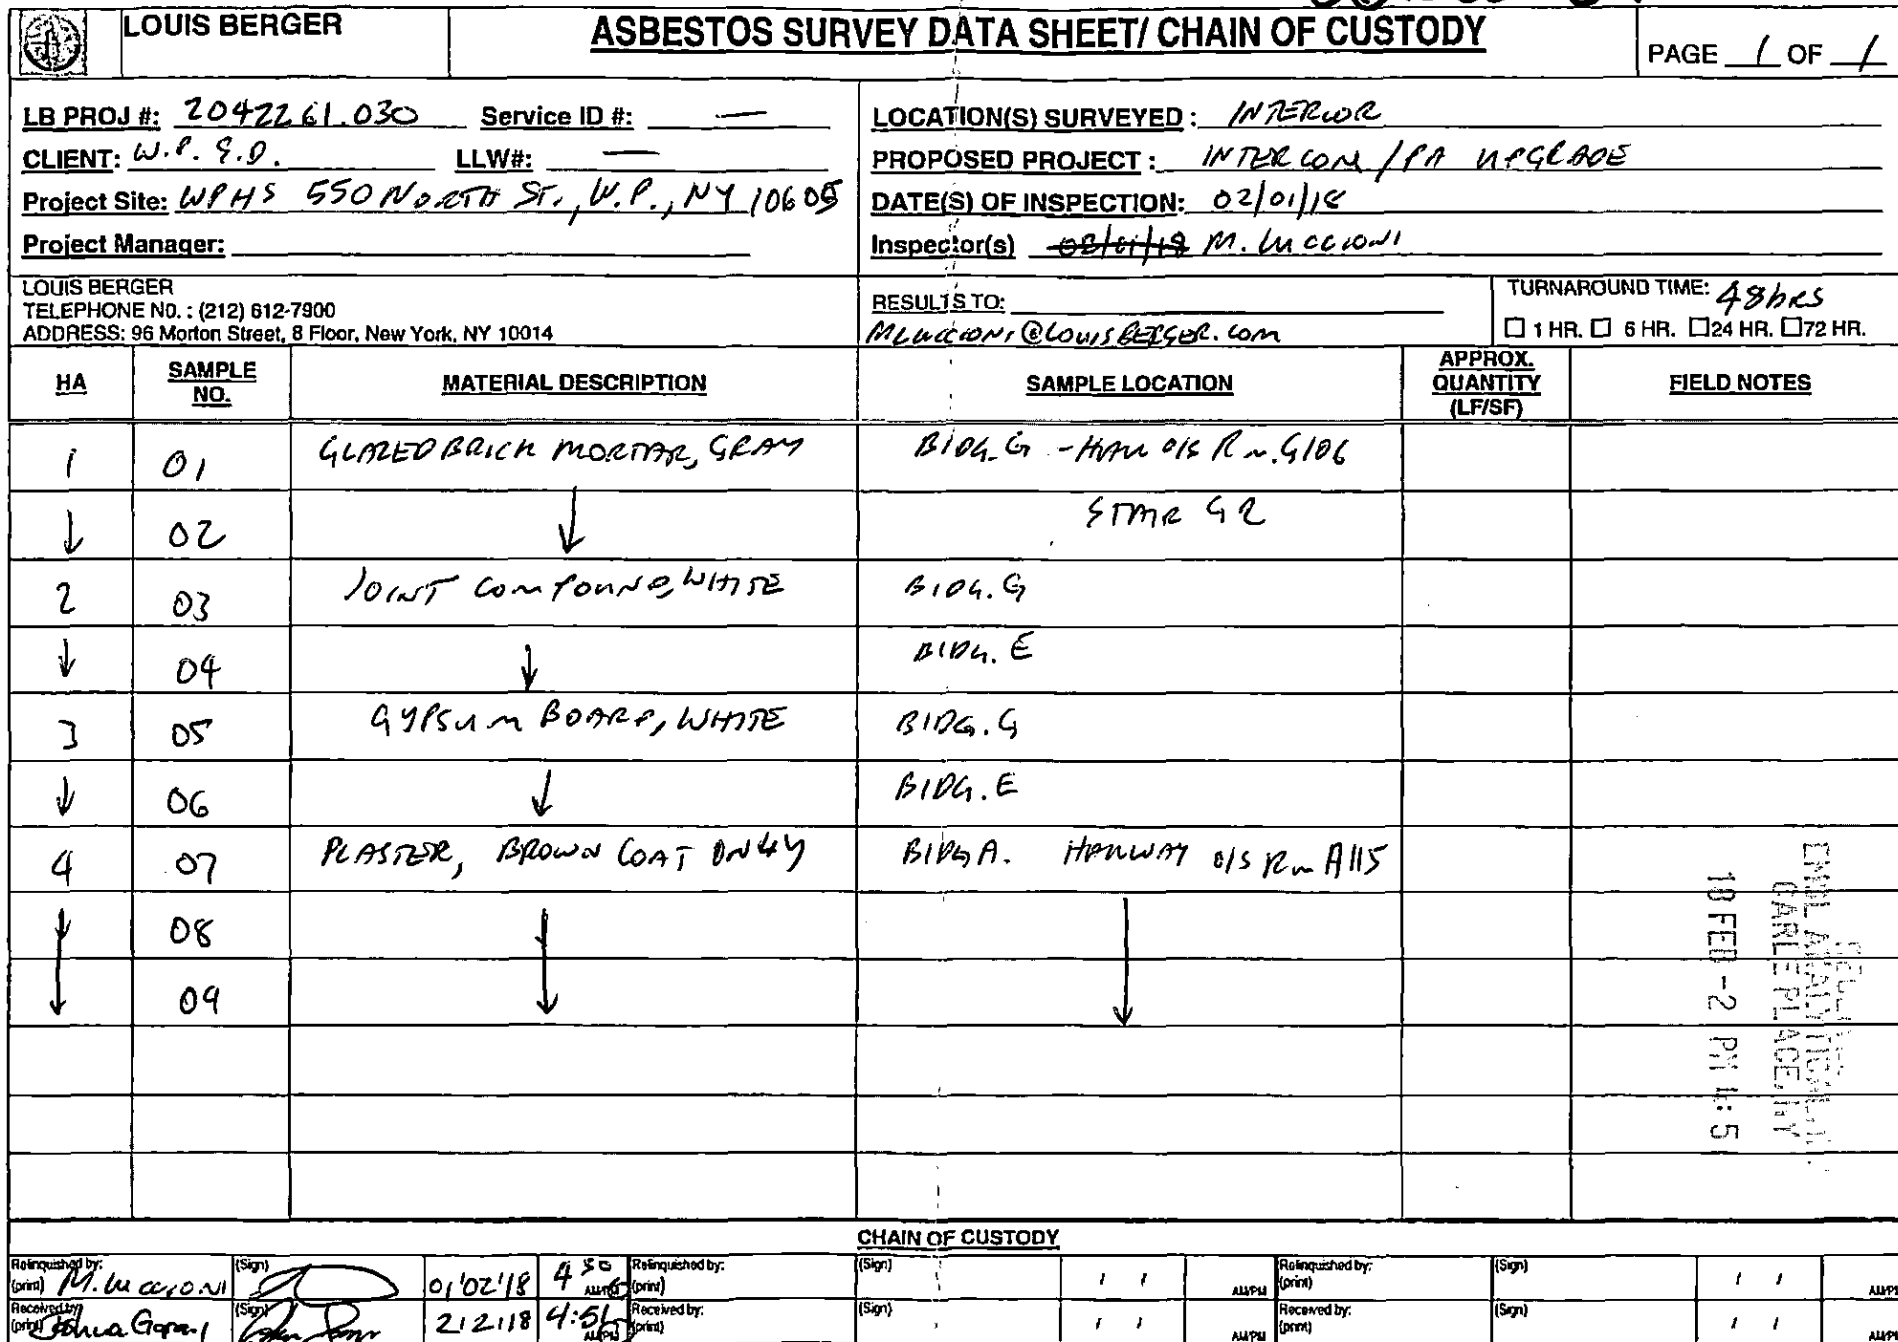 LOUIS BERGER
ASBESTOS SURVEY DATA SHEET/ CHAIN OF CUSTODY
PAGE 1 OF 1
LB PROJ #: 2042261.030 Service ID #: —
LOCATION(S) SURVEYED: INTERIOR
CLIENT: W.P.S.D. LLW#: —
PROPOSED PROJECT: INTERCOM / PA UPGRADE
Project Site: WPHS 550 NORTH ST., W.P., NY 10605
DATE(S) OF INSPECTION: 02/01/18
Project Manager:
Inspector(s) M. LUCCIONI
LOUIS BERGER
TELEPHONE NO. : (212) 612-7900
ADDRESS: 96 Morton Street, 8 Floor, New York, NY 10014
RESULTS TO:
MLUCCIONI@LOUISBERGER.COM
TURNAROUND TIME: 48hrs
☐ 1 HR. ☐ 6 HR. ☐ 24 HR. ☐ 72 HR.
HA SAMPLE NO. MATERIAL DESCRIPTION SAMPLE LOCATION APPROX. QUANTITY (LF/SF) FIELD NOTES
1 01 GLAZED BRICK MORTAR, GRAY BLDG. G - HALL O/S Rm. G106
↓ 02 ↓ STAIR G2
2 03 JOINT COMPOUND, WHITE BLDG. G
↓ 04 ↓ BLDG. E
3 05 GYPSUM BOARD, WHITE BLDG. G
↓ 06 ↓ BLDG. E
4 07 PLASTER, BROWN COAT ONLY BLDG A. HALLWAY O/S Rm A115
↓ 08 ↓ ↓
↓ 09 ↓ ↓
EMSL ANALYTICAL
CARLE PLACE, NY
18 FEB -2 PM 4: 5
CHAIN OF CUSTODY
Relinquished by: (print) M. LUCCIONI (Sign) 01/02/18 4 30 AM/PM Relinquished by: (print) (Sign) / / AM/PM Relinquished by: (print) (Sign) / / AM/PM
Received by: (print) (Sign) 2/2/18 AM/PM Received by: (print) (Sign) / / AM/PM Received by: (print) (Sign) / / AM/PM